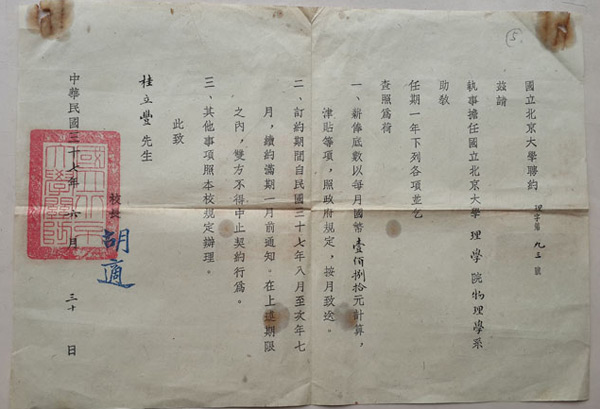 國立北京大學聘約 理字第九三號
茲請
執事擔任國立北京大學理學院物理學系
助教
任期一年下列各項並乞
查照爲荷
一、薪俸底數以每月國幣壹佰捌拾元計算，
津貼等項，照政府規定，按月致送。
二、訂約期間自民國三十七年八月至次年七
月，續約滿期一月前通知。在上述期限
之內，雙方不得中止契約行爲。
三、其他事項照本校規定辦理。
此致
桂立豐先生
校長 胡適
中華民國三十七年六月三十日
5